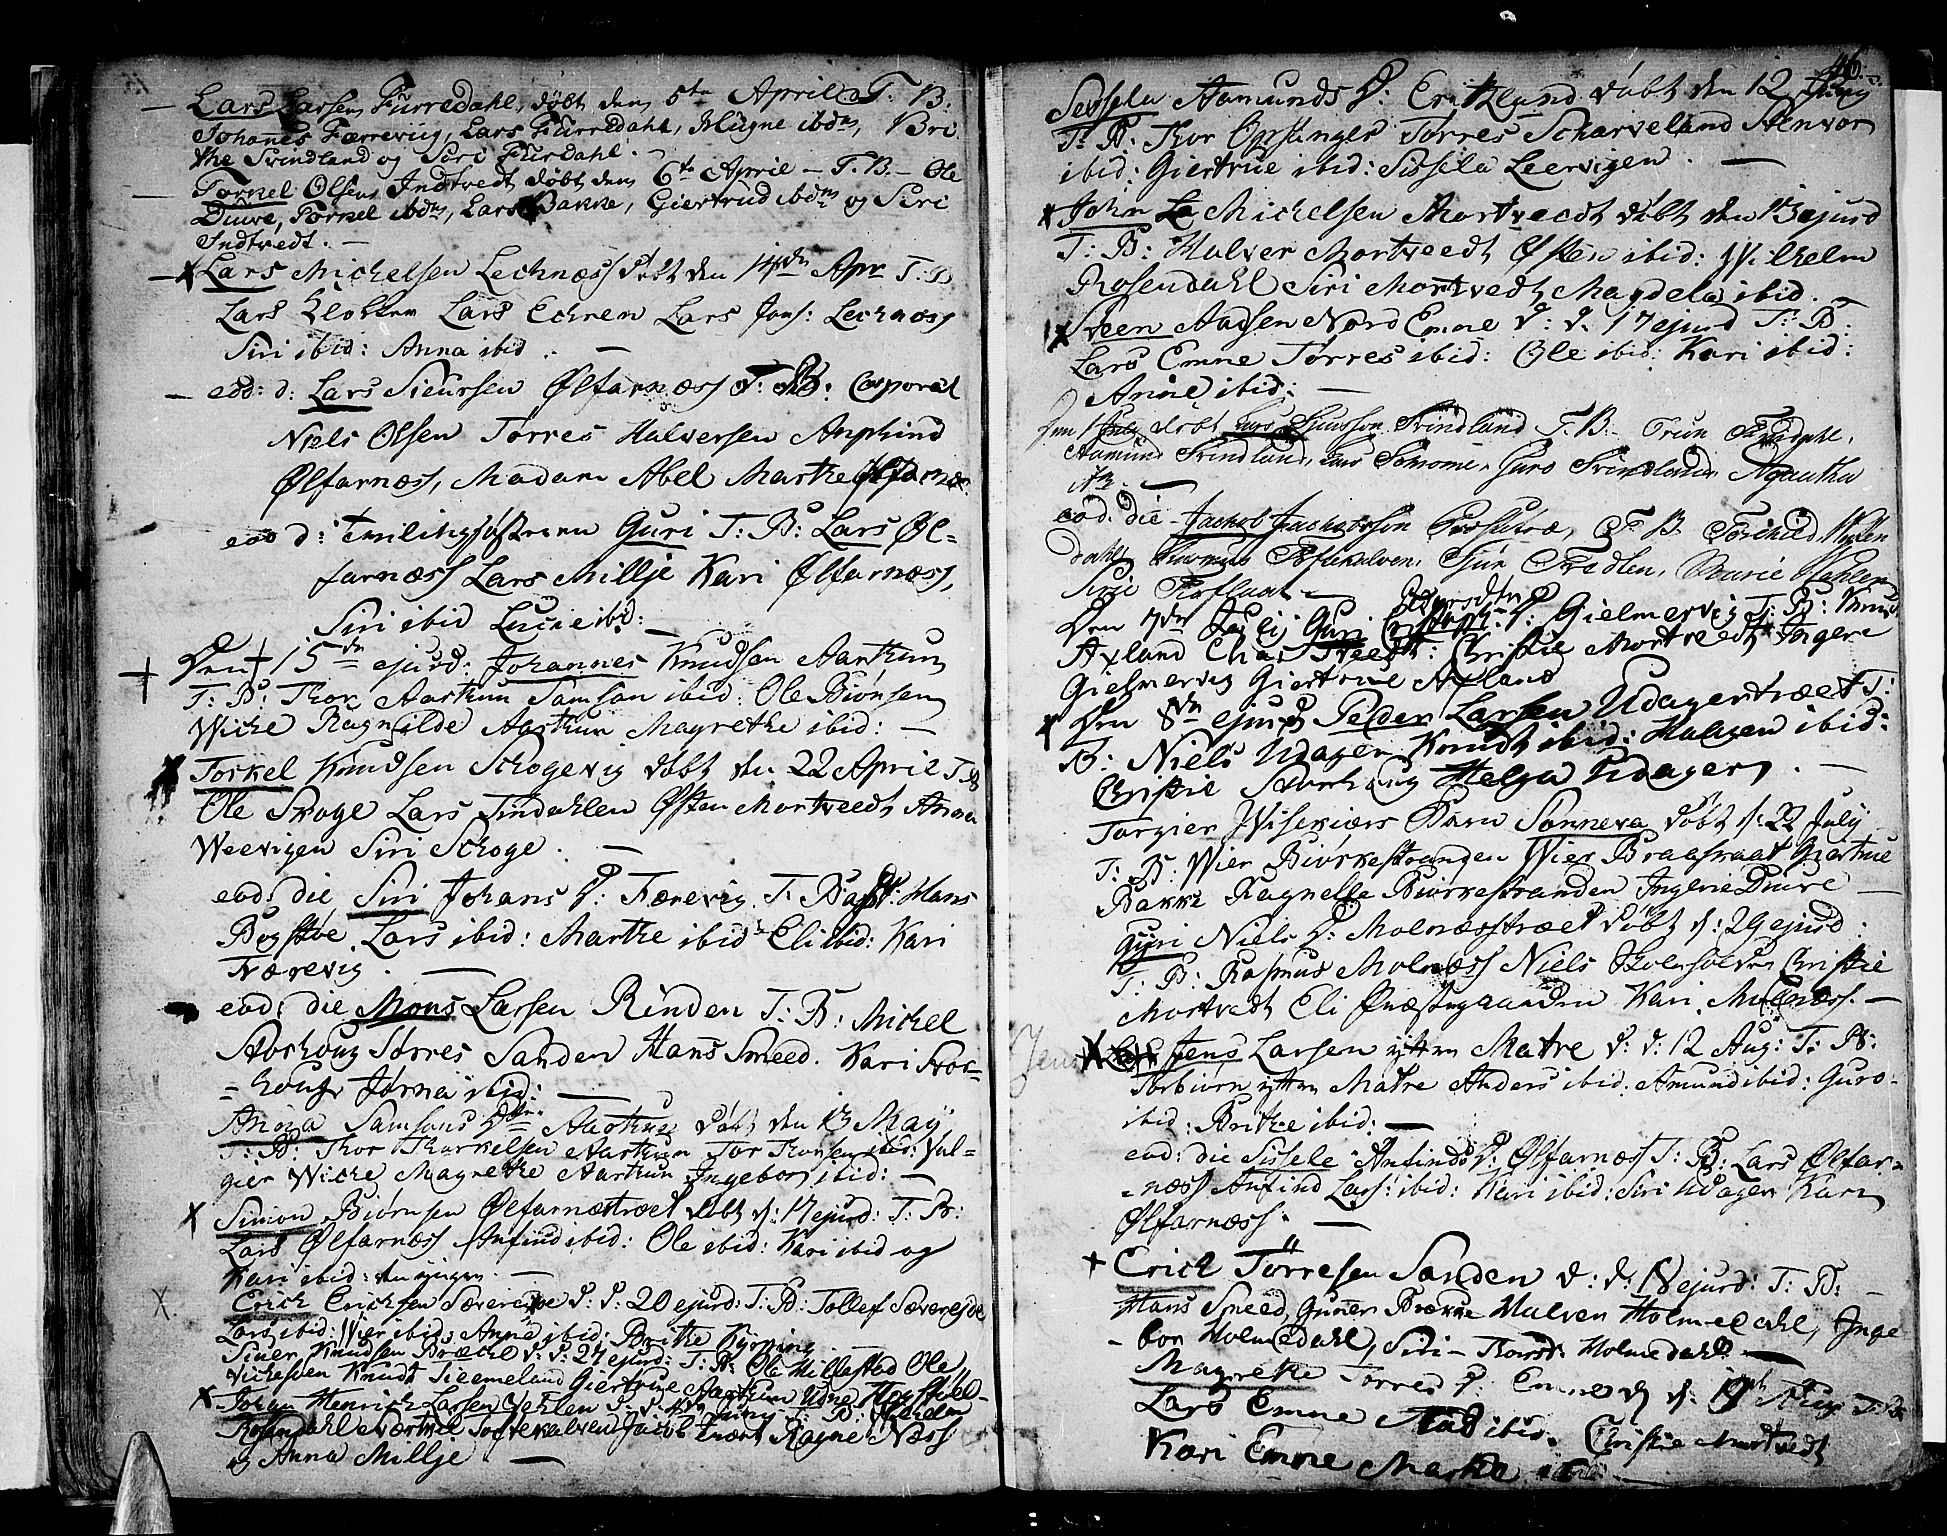 Lars Larsen Furredahl, döbt den 5te April T. B.
Johanes Færrevig, Lars Furredahl, Mugne ibdm, Bri
the Svindland og Siri Furdahl. —
Torkel Olsen Indtvedt döbt den 6te April – T. B. – Ole
Duive, Torkel ibdm, Lars Bakke, Giertrud ibdm og Siri
Indtvedt. —
Lars Michelsen Lechnæss døbt den 14de Apr T: B
Lars Klokken Lars Echren Lars Jons: Lechnæss
Siri ibid: Anna ibid. —
eod: d: Lars Sieursen Ølfarnæss T: B: Corporal
Niels Olsen Torres Halversen Anphind
Ølfarnæss, Madam Abel Marthe Ølfarnæs.
eod d: Guri T: B: Lars Øl-
farnæss Lars Millje Kari Ølfarnæss,
Siri ibid Lucie ibd: —
Den 15de ejusd. Johannes Knudsen Aarthun
T: B: Thor Aarthun Samson ibid: Ole Biønsen
Wiche Ragnilde Aarthun Magrethe ibid: —
Torkel Knudsen Schogevig döbt den 22 April T: B
Ole Skoge Lars Tindahlen Østen Mortveedt Anna
Weevigen Siri Schoge. —
eod: die Siri Johans D: Færevig. T: B: Hans
Bogstøe, Lars ibid: Marthe ibid: Eli ibid: Kari
Færevig. —
eod: die Mons Larsen Rinden T: B: Michel
Storhoug Torres Sanden Hans Smeed. Kari Stor-
houg, Jorna ibid: —
Anna Samsons Dtr: Aarthun döbt den 13 May
T: B: Thor Thorkelsen Aarthun Tor Thorsen ibid: Val-
gier Wiche Magrethe Aarthun Ingebor ibid: —
Simon Biørnsen Ølfarnæstræet döbt d: 17 ejusd: T: B:
Lars Ølfarnæss Anfind ibid: Ole ibid: Kari ibid og
Kari ibid: den yngre. —
Erich Erichsen Sævereide D: D: 20 ejusd: T: B: Tollef Sævereide
Lars ibid: Wier ibid: Anne ibid: Brithe Kyrping
Siuer Knudsen Bræche D: D: 27 ejusd: T: B: Ole Millested Ole
Vichesøen Knudt Tieemeland Giertrue Aarthun
Johan Henrich Larsen Wehlen D: D: Juny T: B: Wilhelm
Rosendahl Sværthel Jacob Ragne Næss
og Anna Millje —
116.
Sessela Aamunds D: Eritzland döbt den 12 Juny
T: B: Thor Opsanger Torres Scharveland Stenvor
ibid: Giertrue ibid: Sissela Leervigen. —
John Michelsen Mortveedt döbt den 13 ejusd
T: B: Halver Mortveedt Østen ibid: Wilhelm
Rosendahl Siri Mortvedt Magdela ibid.
Steen Aadsen Nord Emne D: D. 17 ejusd T: B:
Lars Emne Torres ibid: Ole ibid: Kari ibid:
Anne ibid: —
Den 1 July döbt Lars Siursson Svindland T. B. – Trun
Aamund Svindland, Lars Guro Svindland Agautha
ibm. —
eod. die – Jachob Jachobsson T. B. Torchild
Rasmus Marie
Siri —
Den 7de July Guri D: Gielmervig T: B: Knud
Axland Christie Mortveedt Ingere
Gielmervig Giertrue Axland
Den 8de ejusd Peder Larsen Udagertræet T:
B: Niels Udager Knudt ibid: Halgen ibid:
Christie Storhaug Helga Udager. —
Torgier Wiskiærs Barn Sonneva döbt d: 22 July
T: B: Wier Biørkestranden Wier Braastaat Giertrue
Bakke Ragnelle Biørkestranden Ingerie Duive —
Guri Niels D: Molnæsstræet döbt d: 29 ejusd:
T: B: Rasmus Molnæss Niels Christie
Mortvedt Eli Præstegaarden Kari Molnæss. —
Jens
Jens Larsen ytten Matre D: D: 12 Aug: T: B:
Torbiørn ytten Matre Anders ibid. Amund ibid: Guro
ibid: Brithe ibid: —
eod: die Sissele Anfinds D: Ølfarnæss T: B: Lars Ølfar-
næss Anfind Lars: ibid: Kari ibid: Siri Udager Kari
Ølfarnæss. —
Erich Törresen Sanden D: D: ejusd: T: B:
Hans Smeed, Gunner Bræke Halven Holmedahl, Inge
bor Holmedahl, Siri Thorsd: Holmedahl —
Magrethe Torres D: Emne D: D: 19de Aug T: B:
Lars Emne Aad ibid. Christie Mortvedt
Kari Emne Marthe ibid. —